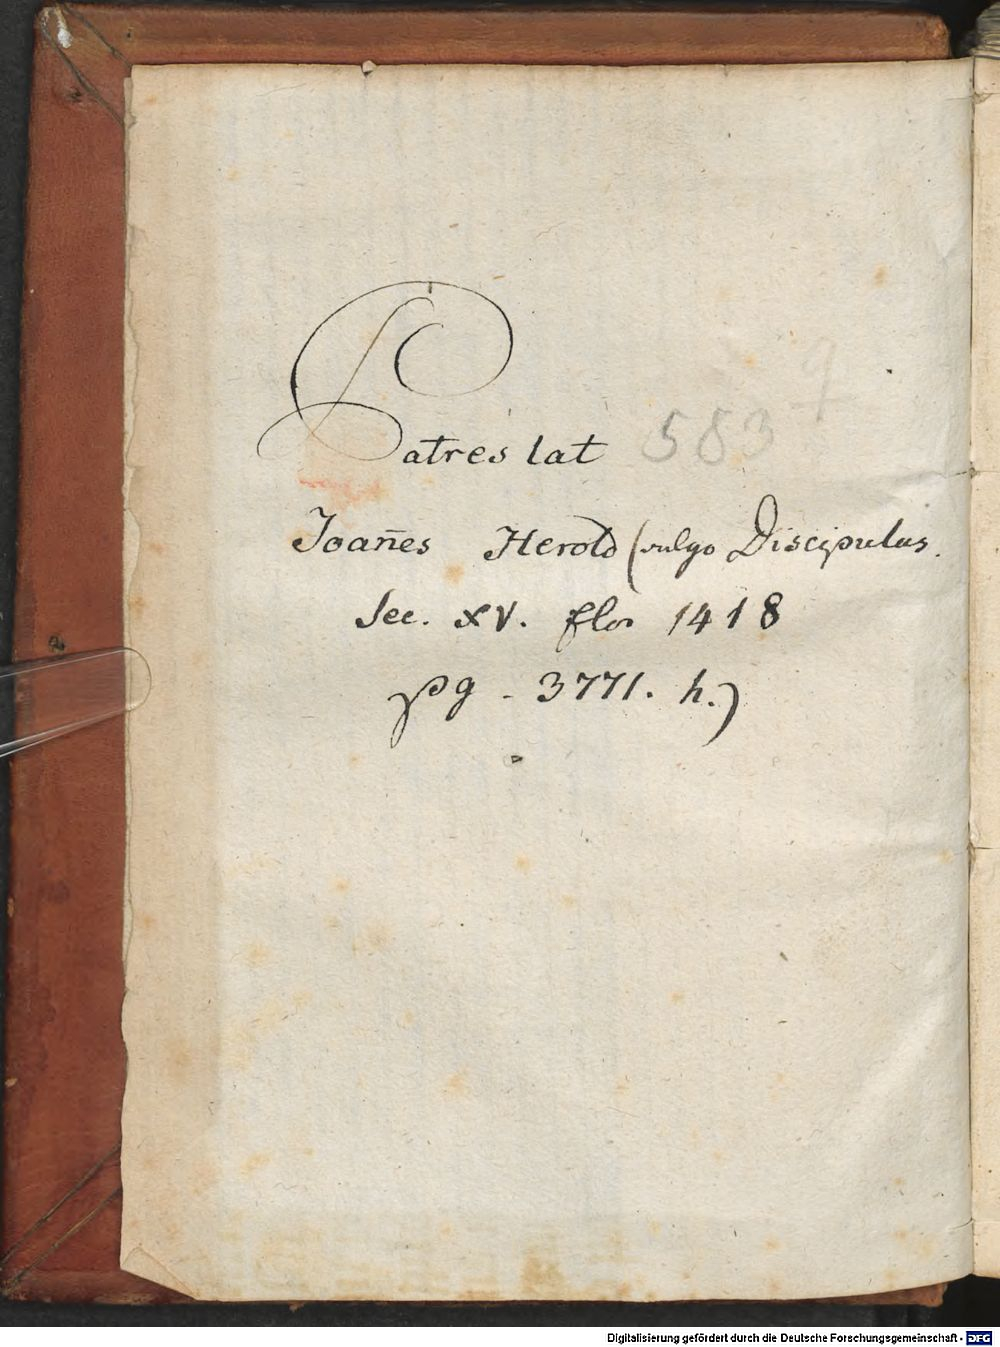 Patres lat 583
Joañes Herold (vulgo Discipulus.
Sec. XV. flor 1418
pg - 3771. h.)
Digitalisierung gefördert durch die Deutsche Forschungsgemeinschaft - DFG